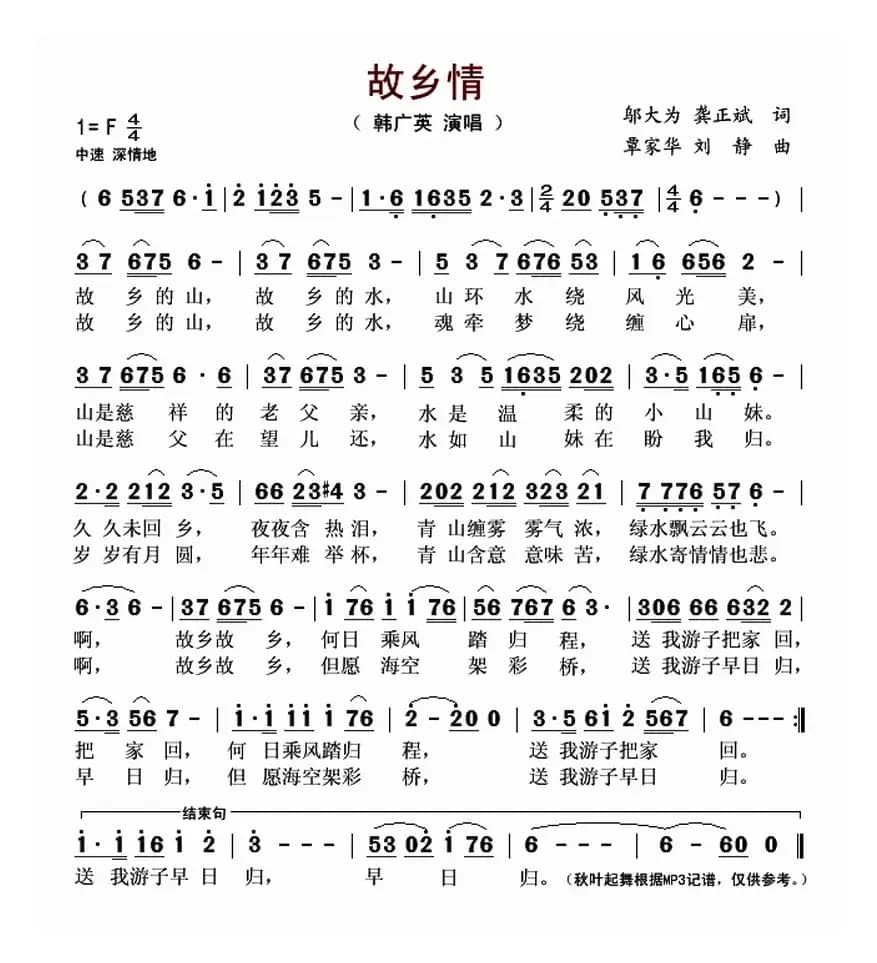 故乡情
（ 韩广英 演唱 ）
1= F 4/4
中速 深情地
邬大为 龚正斌 词
覃家华 刘 静 曲
( 6 537 6·i | 2 i23 5 - | 1·6 1635 2·3 | 2/4 20 537 | 4/4 6 - - - ) |
3 7 675 6 - | 3 7 675 3 - | 5 3 7 676 53 | 1 6 656 2 - |
故 乡 的 山， 故 乡 的 水， 山 环 水 绕 风 光 美，
故 乡 的 山， 故 乡 的 水， 魂 牵 梦 绕 缠 心 扉，
3 7 675 6 · 6 | 37 675 3 - | 5 3 5 1635 202 | 3·5 165 6 - |
山是慈 祥 的 老 父 亲， 水 是 温 柔 的 小 山 妹。
山是慈 父 在 望 儿 还， 水 如 山 妹 在 盼 我 归。
2·2 212 3·5 | 66 23#4 3 - | 202 212 323 21 | 7 776 57 6 - |
久 久未回 乡， 夜夜含 热 泪， 青 山缠雾 雾气 浓， 绿水飘云云也飞。
岁 岁有月 圆， 年年难 举 杯， 青 山含意 意味 苦， 绿水寄情情也悲。
6·3 6 - | 37 675 6 - | i 76 i i 76 | 56 767 6 3· | 306 66 632 2 |
啊， 故乡故 乡， 何日 乘风 踏 归 程， 送 我游子把家 回，
啊， 故乡故 乡， 但愿 海空 架 彩 桥， 送 我游子早日 归，
5·3 56 7 - | i·i ii i 76 | 2 - 20 0 | 3·5 6i 2 567 | 6 - - - :||
把 家 回， 何 日乘风踏归 程， 送 我游子把家 回。
早 日 归， 但 愿海空架彩 桥， 送 我游子早日 归。
结束句
i· i i6 i 2 | 3 - - - | 53 02 i 76 | 6 - - - | 6 - 60 0 ||
送 我游子早 日 归， 早 日 归。（秋叶起舞根据MP3记谱，仅供参考。）